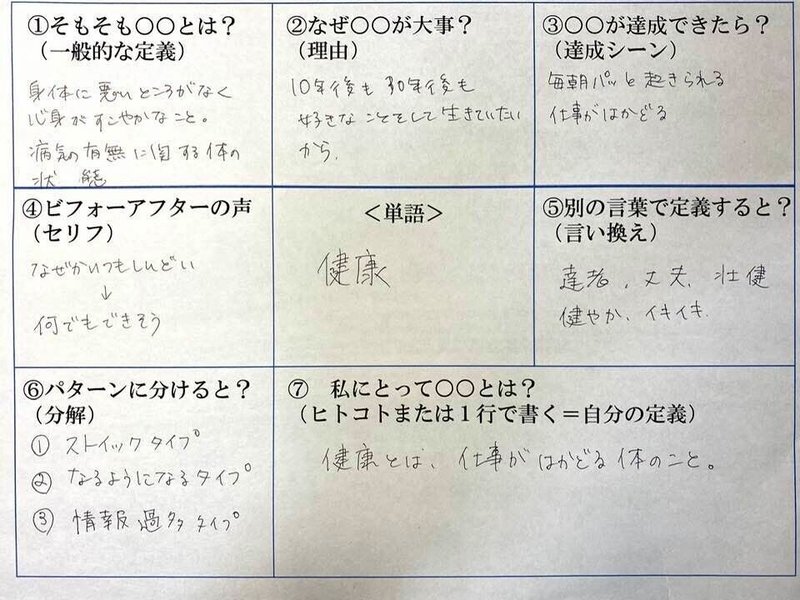 ①そもそも〇〇とは?
(一般的な定義)
身体に悪いところがなく
心身がすこやかなこと。
病気の有無に関する体の
状態
②なぜ〇〇が大事?
(理由)
10年後も30年後も
好きなことをして生きていたい
から。
③〇〇が達成できたら?
(達成シーン)
毎朝パッと起きられる
仕事がはかどる
④ビフォーアフターの声
(セリフ)
なぜかいつもしんどい
↓
何でもできそう
<単語>
健康
⑤別の言葉で定義すると?
(言い換え)
達者、丈夫、壮健
健やか、イキイキ
⑥パターンに分けると?
(分解)
① ストイックタイプ
② なるようになるタイプ
③ 情報過多タイプ
⑦ 私にとって〇〇とは?
(ヒトコトまたは1行で書く=自分の定義)
健康とは、仕事がはかどる体のこと。